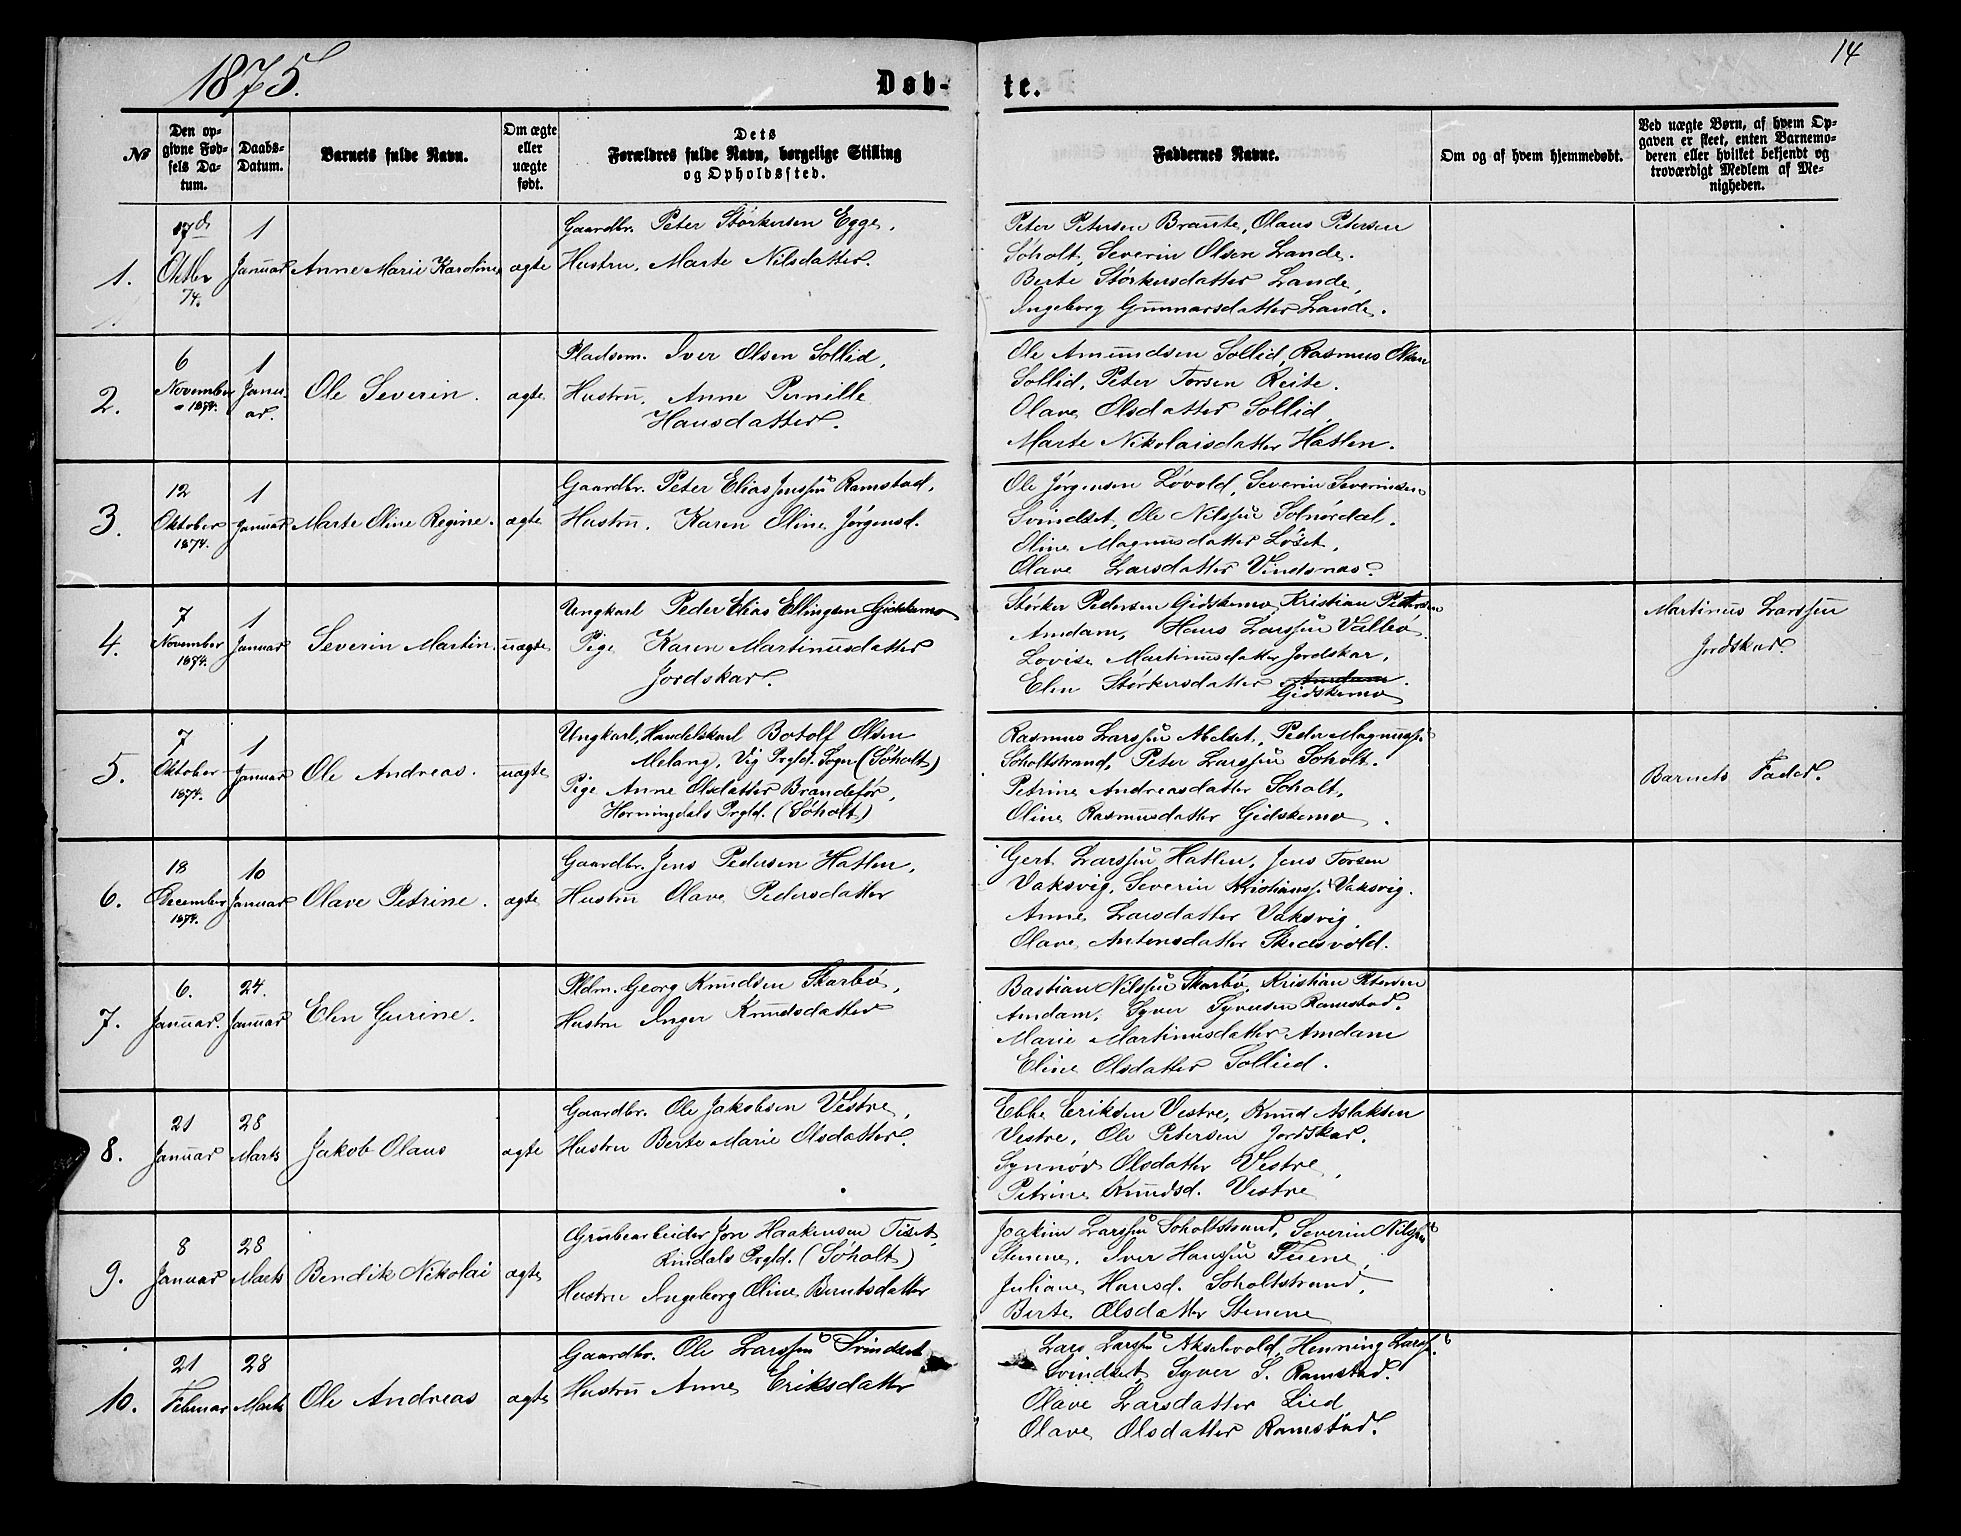 1875.
14
Døb-
te.
No
Den op-
givne Fød-
sels Da-
tum.
Daabs-
Datum.
Barnets fulde Navn.
Om ægte
eller
uægte
født.
Dets
Forældres fulde Navn, borgelige Stilling
og Opholdssted.
Faddernes Navne.
Om og af hvem hjemmedøbt.
Ved uægte Børn, af hvem Op-
gaven er skeet, enten Barnemo-
deren eller hvilket bekjendt og
troværdigt Medlem af Me-
nigheden.
1.
17de
Oktbr
74.
1
Januar
Anne Marie Karoline
ægte
Gaardbr. Peter Størkersen Egge.
Hustru, Marte Nilsdatter.
Peter Petersen Braute, Olaus Petersen
Søholt. Severin Olsen Lande.
Berte Størkersdatter Lande,
Ingeborg Gunnarsdatter Lande.
2.
6
November
1874.
1
Janu-
ar.
Ole Severin.
ægte
Pladsem. Iver Olsen Sollid,
Hustru, Anne Pernille
Hansdatter.
Ole Amundsen Sollid, Rasmus Olsen
Sollid, Peter Torsen Reite.
Olave Olsdatter Sollid,
Marte Nikolaisdatter Hatlen.
3.
12
Oktober
1874.
1
Januar
Marte Oline Regine.
ægte
Gaardbr. Peter Elias Jenssen Ramstad,
Hustru, Karen Oline Jørgensd.
Ole Jørgensen Løvold, Severin Severinsen
Svindset, Ole Nilssen Solnørdal.
Oline Magnusdatter Løset,
Olave Larsdatter Vindsnæs.
4.
7
November
1874.
1
Januar
Severin Martin.
uægte
Ungkarl Peder Elias Ellingsen Gidskemo
Pige Karen Martinusdatter
Jordskar.
Størker Pedersen Gidskemo, Kristian Petersen
Amdam, Hans Larssen Valbø.
Lovise Martinusdatter Jordskar,
Elen Størkersdatter Amdam.
Gidskemo
Martinus Larssen
Jordskar.
5.
7
Oktober
1874.
1
Januar
Ole Andreas.
uægte
Ungkarl, Handelskarl Botolf Olsen
Melang, Vig Prgld. Sogn (Søholt)
Pige Anne Olsdatter Brandefør,
Horningdals Prgld. (Søholt)
Rasmus Larssen Abelset, Peder Magnuss.
Søholtstrand, Peter Larssen Søholt.
Petrine Andreasdatter Søholt,
Oline Rasmusdatter Gidskemo.
Barnets Fader.
6.
18
December
1874.
10
Januar
Olave Petrine.
ægte
Gaardbr. Jens Pedersen Hatlen,
Hustru Olave Pedersdatter
Gert Larssen Hatlen, Jens Torsen
Vaksvig, Severin Kristianss. Vaksvig.
Anne Larsdatter Vaksvig,
Olave Antonsdatter Skidsvold.
7.
6.
Januar.
24.
Januar
Elen Gurine.
Pldm. Georg Knudsen Skarbø,
Hustru Inger Knudsdatter
Bastian Nilssen Skarbø, Kristian Petersen
Amdam, Syver Syversen Ramstad.
Marie Martinusdatter Amdam
Eline Olsdatter Sollied.
8.
21
Januar
28
Marts
Jakob Olaus
ægte
Gaardbr. Ole Jakobsen Vestre,
Hustru Berte Marie Olsdatter.
Ebbe Eriksen Vestre, Knud Aslaksen
Vestre, Ole Petersen Jordskar.
Synnøv Olsdatter Vestre,
Petrine Knudsd. Vestre
9.
8
Januar
28
Marts
Bendik Nikolai
ægte
Grubearbeider Jon Haakensen Tiset,
Rindals Prgld. (Søholt)
Hustru Ingeborg Oline Berntsdatter
Joakim Larssen Søholtstrand, Severin Nilssen
Stenene, Iver Hanssen Teiene,
Juliane Hansd. Søholtstrand,
Berte Olsdatter Stenene
10.
21
Februar
28
Marts
Ole Andreas
ægte
Gaardbr. Ole Larssen Svindset
Hustru Anne Eriksdatter
Lars Larssen Akselvold, Henning Larss.
Svindset, Syver S. Ramstad.
Olave Larsdatter Lied
Olave Olsdatter Ramstad.